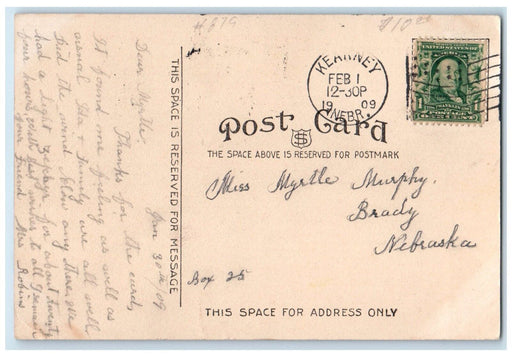 #879
$10.00
KEARNEY
FEB 1
12-30P
1909
NEBR.
UNITED STATES OF AMERICA
Post Card
THE SPACE ABOVE IS RESERVED FOR POSTMARK
THIS SPACE IS RESERVED FOR MESSAGE
Jan 30th/09
Dear Myrtle,
Thanks for the card,
It found me feeling as well as
usual. Ida & Family are all well
Did the wind blow any there, we
had a light zephyr for about twenty
four hours, with best wishes to all I remain
your Friend Mrs Robins
Miss Myrtle Murphy.
Brady
Nebraska
Box 25
THIS SPACE FOR ADDRESS ONLY